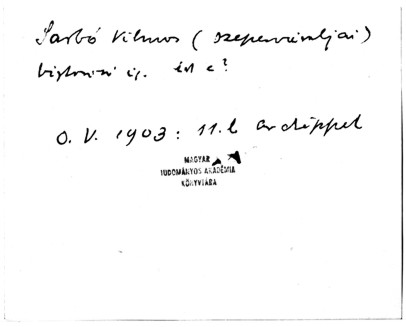 Sarbó Vilmos (szepesváraljai)
biztosító ig. él e?
O. V. 1903: 11. l arcképpel
MAGYAR
TUDOMÁNYOS AKADÉMIA
KÖNYVTÁRA